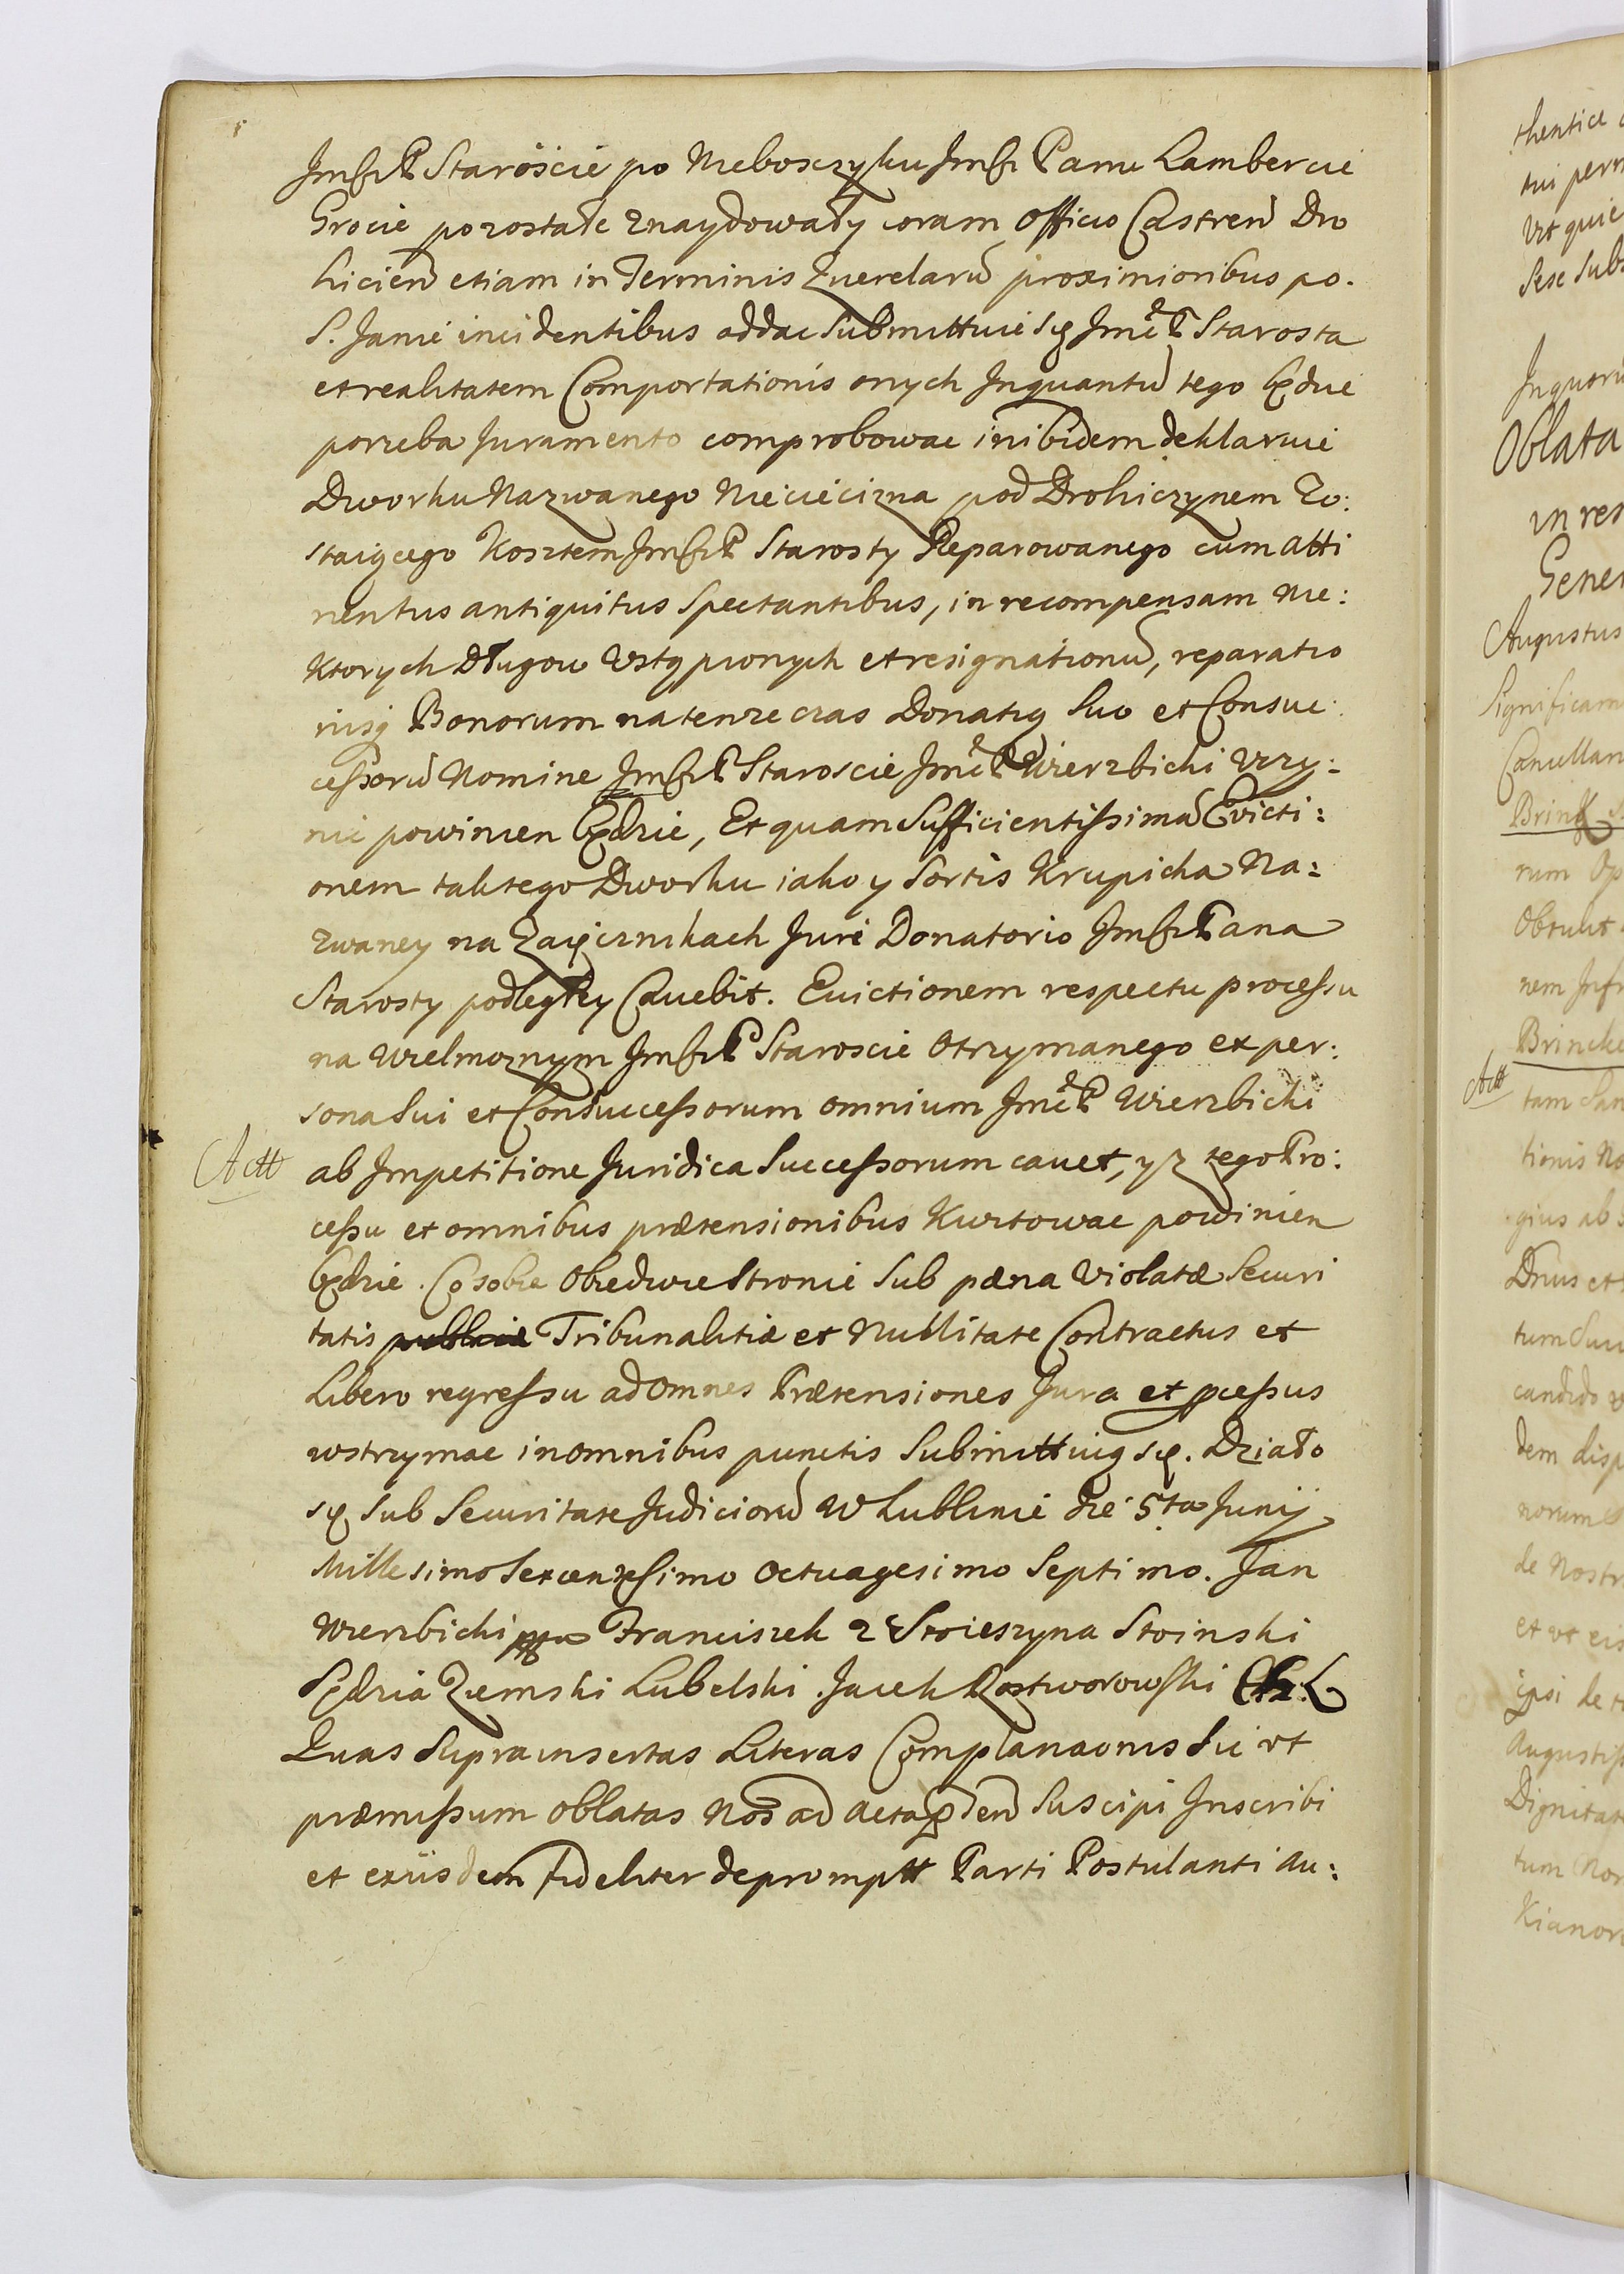 Jmści P Staroście po Nieboszczyku Jmści Panu Lambercie
Grocie pozostałe znaydowały coram Officio Castren Dro
hicien etiam in Terminis Querelarum proximioribus po.
S. Janie incidentibus oddac Submittuie się Jmć P Starosta
et realitatem Comportationis onych Inquantum tego będzie
potrzeba Juramento comprobowac inibidem deklaruie
Dworku Nazwanego Niecieczna pod Drohiczynem Zo:
staiącego Kosztem Jmści P Starosty Reparowanego cum atti
nentiis antiquitus Spectantibus, in recompensam nie:
Ktorych Długow Ustąpionych et resignationum, reparatio
nisq Bonorum na ten czas Donatią Suo et Consuc
cessorum Nomine Jmści P Staroscie Jmć P Wierzbicki Uczy:
nic powinien będzie, Et quam Sufficientissimam Evicti:
onem tak tego Dworku iako y Sortis Krupicka Na:
zwaney na Zaięcznikach Jure Donatorio Jmści Pana
Starosty podległey Cavebit. Evictionem respectu processu
na Wielmoznym Jmści P Staroscie Otrzymanego ex per:
sona Sui et Consuccessorum omnium Jmć P Wierzbicki
Actt
ab Impetitione Juridica Successorum cavet, y z tego Pro:
cessu et omnibus prætensionibus Kwitowac powinien
będzie. Co sobie Obiedwie Stronie Sub pæna Violatæ Securi
tatis publicæ Tribunalitiæ et Nullitate Contractus et
Libero regressu ad Omnes Prætensiones Jura et pcessus
wstrzymac in omnibus punctis Submittuią się. Działo
się sub Securitate Judiciorum w Lublinie die 5ta Junij
Millesimo Sexcentesimo Octuagesimo Septimo. Jan
Wierzbicki Franciszek z Stoieszyna Stoinski
Sędzia Ziemski Lubelski. Jacek Rostworowski
Quas Suprainsertas Literas Complanaonis Sic ut
præmissum Oblatas Nos ad Acta Suscipi Inscribi
et exiisdem fideliter depromptt Parti Postulanti au:
thentice
Oblata
in res
Gener
Augustus
Significam
Cancellar
rum
Obtulit
Actt
tam
tionis No
gius ab
candido
dem disp
norum
de Nostr
et ut eis
ipsi de
Augustiss
Dignitat
tum Nos